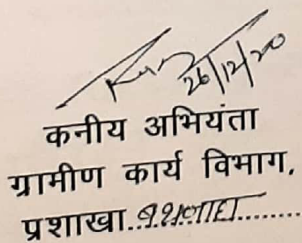 26/12/20
कनीय अभियंता
ग्रामीण कार्य विभाग,
प्रशाखा